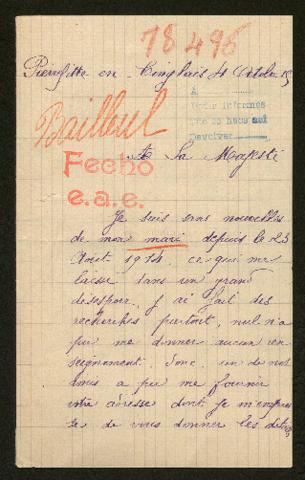 78496
Pierrefitte en Cinglais 4 Octobre 15
Bailleul
A
Pour informes
que se haga así
Devolver
Fecho
e.a.e.
A Sa Majesté
Je suis sans nouvelles
de mon mari depuis le 23
Aout 1914. ce qui me
laisse dans un grand
désespoir, j'ai fait des
recherches partout, nul n'a
pu me donner aucun ren
seignement. Donc, un de nos
amis a pu me fournir
votre adresse dont je m'empres
se de vous donner les détails